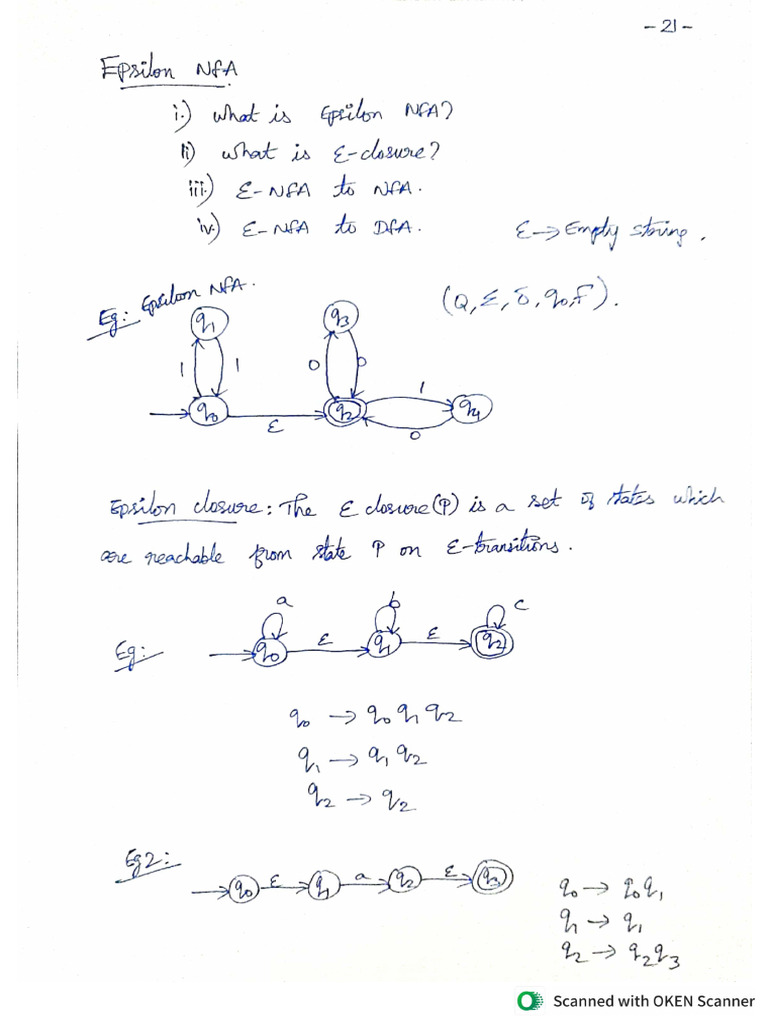 - 21 -
Epsilon NFA
i.) What is Epsilon NFA?
ii) What is ε-closure?
iii.) ε-NFA to NFA.
iv.) ε-NFA to DFA.
ε → Empty string.
Eg: Epsilon NFA.
(Q, Σ, δ, q0, F).
q1 q3
1 1 0 0
1
q0 ε q2 q4
0
Epsilon closure: The ε closure(P) is a set of states which
are reachable from state P on ε-transitions.
a b c
Eg: q0 ε q1 ε q2
q0 → q0 q1 q2
q1 → q1 q2
q2 → q2
Eg2: q0 ε q1 a q2 ε q3
q0 → q0 q1
q1 → q1
q2 → q2 q3
Scanned with OKEN Scanner